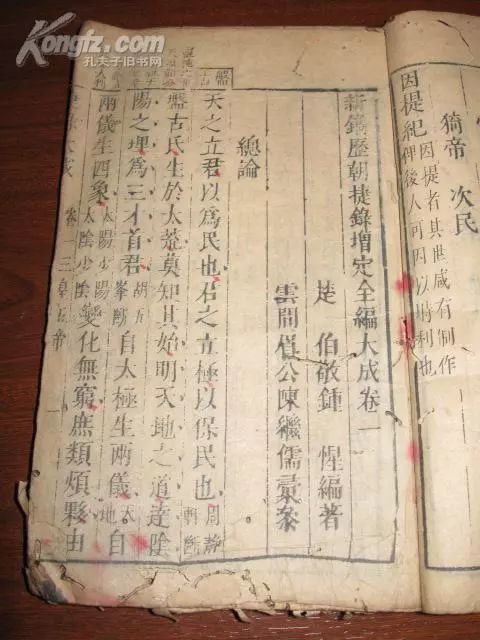 Kongfz.com
孔夫子旧书网
猗帝 次民
因提紀 因提者其世咸有制作
俾後人可因以時利也
新鐫歷朝捷錄增定全編大成卷一
楚 伯敬鍾 惺編著
雲間眉公陳繼儒彙叅
總論
天之立君以爲民也君之立極以保民也 周靜
軒斷
盤古
盤古氏生於太荒莫知其始明天地之道達陰
陽之理爲三才首君 胡五
峯斷 自太極生兩儀 天
地 自
兩儀生四象 太陽少陽
太陰少陰 變化無窮庶類煩夥由
卷一 三皇五帝